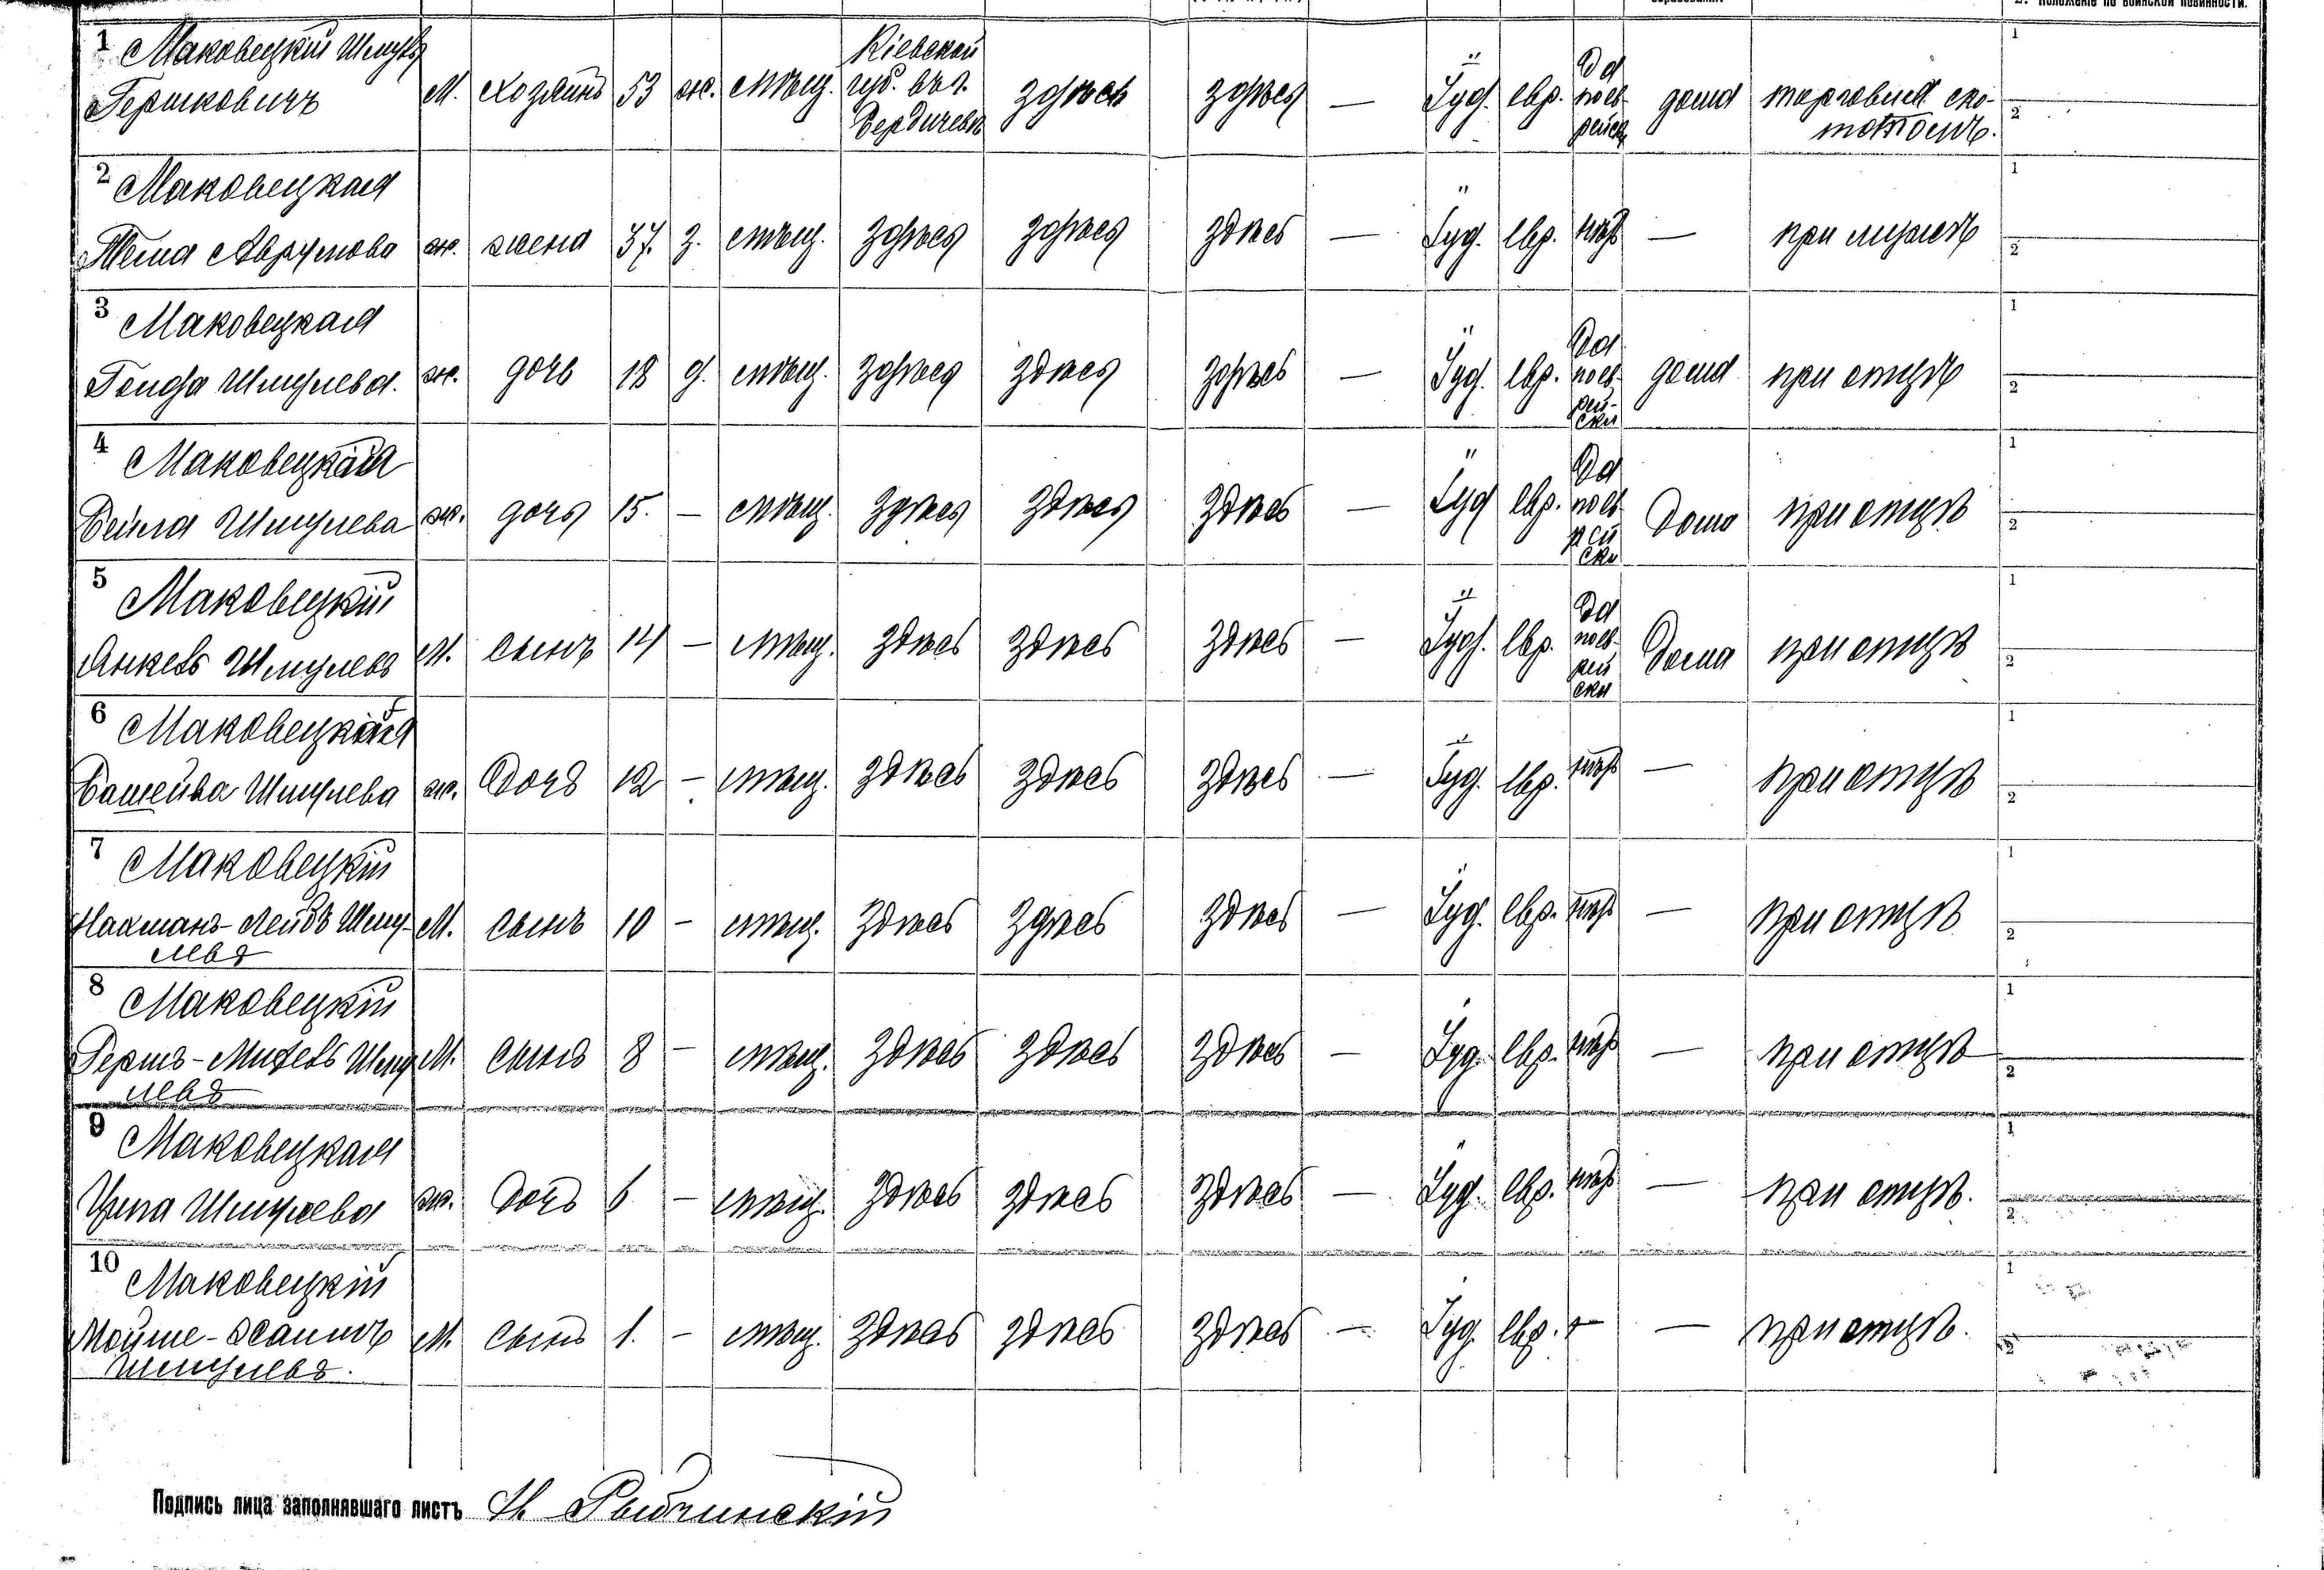 2. Положеніе по воинской повинности.
1 Маковецкій Шмуль
Гершковичъ
М. хозяинъ 53 ж. мѣщ.
Кіевской
губ. въ г.
Бердичевѣ
здѣсь здѣсь — Іуд. евр.
Да
по ев-
рейск
дома
торговля ско-
томъ.
1
2
2 Маковецкая
Тема Аврумова ж. жена 37. з. мѣщ. здѣсь здѣсь здѣсь — Іуд. евр. нѣтъ — при мужѣ
1
2
3 Маковецкая
Голда Шмулева. ж. дочь 18 д. мѣщ. здѣсь здѣсь здѣсь — Іуд. евр.
Да
по ев-
рей-
ски
дома при отцѣ
1
2
4 Маковецкая
Бейла Шмулева ж. дочь 15. — мѣщ. здѣсь здѣсь здѣсь — Іуд евр.
Да
по ев-
рей
ски
дома при отцѣ
1
2
5 Маковецкій
Янкель Шмулевъ М. сынъ 14 — мѣщ. здѣсь здѣсь здѣсь — Іуд. евр.
Да
по ев-
рей
ски
дома при отцѣ
1
2
6 Маковецкая
Башейва Шмулева ж. Дочь 12 — мѣщ. здѣсь здѣсь здѣсь — Іуд. евр. нѣтъ — при отцѣ
1
2
7 Маковецкій
Нахманъ-Лейбъ Шму-
левъ
М. сынъ 10 — мѣщ. здѣсь здѣсь здѣсь — Іуд. евр. нѣтъ — при отцѣ
1
2
8 Маковецкій
Гершъ- Шму
левъ
М. сынъ 8 — мѣщ. здѣсь здѣсь здѣсь — Іуд. евр. нѣтъ — при отцѣ
1
2
9 Маковецкая
Ципа Шмулева ж. дочь 6 — мѣщ. здѣсь здѣсь здѣсь — Іуд. евр. нѣтъ — при отцѣ.
1
2
10 Маковецкій
Мойше-
Шмулевъ.
М. сынъ 1. — мѣщ. здѣсь здѣсь здѣсь — Іуд. евр. — — при отцѣ.
1
2
Подпись лица заполнявшаго листъ